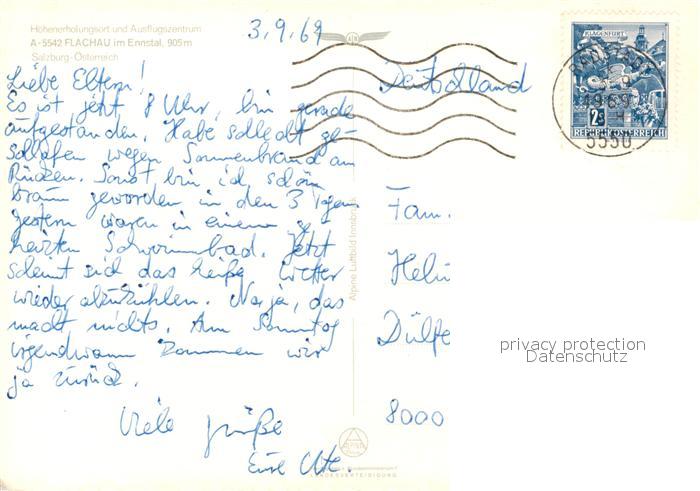 Höhenerholungsort und Ausflugszentrum
A-5542 FLACHAU im Ennstal, 905 m
Salzburg-Österreich
3.9.69
Liebe Eltern!
Es ist jetzt 8 Uhr, bin gerade
aufgestanden. Habe schlecht ge-
schlafen wegen Sonnenbrand am
Rücken. Sonst bin ich schön
braun geworden in den 3 Tagen
gestern waren in einem ge-
heizten Schwimmbad. Jetzt
scheint sich das heiße Wetter
wieder abzukühlen. Na ja, das
macht nichts. Am Sonntag
irgendwann kommen wir
ja zurück.
Viele Grüße
Eure Ute.
Alpine Luftbild Innsbruck
LANDESVERTEIDIGUNG
KLAGENFURT
2S
REPUBLIK ÖSTERREICH
RADSTADT
1969
5550
Deutschland
Fam.
Helm
Dülfe
8000
privacy protection
Datenschutz